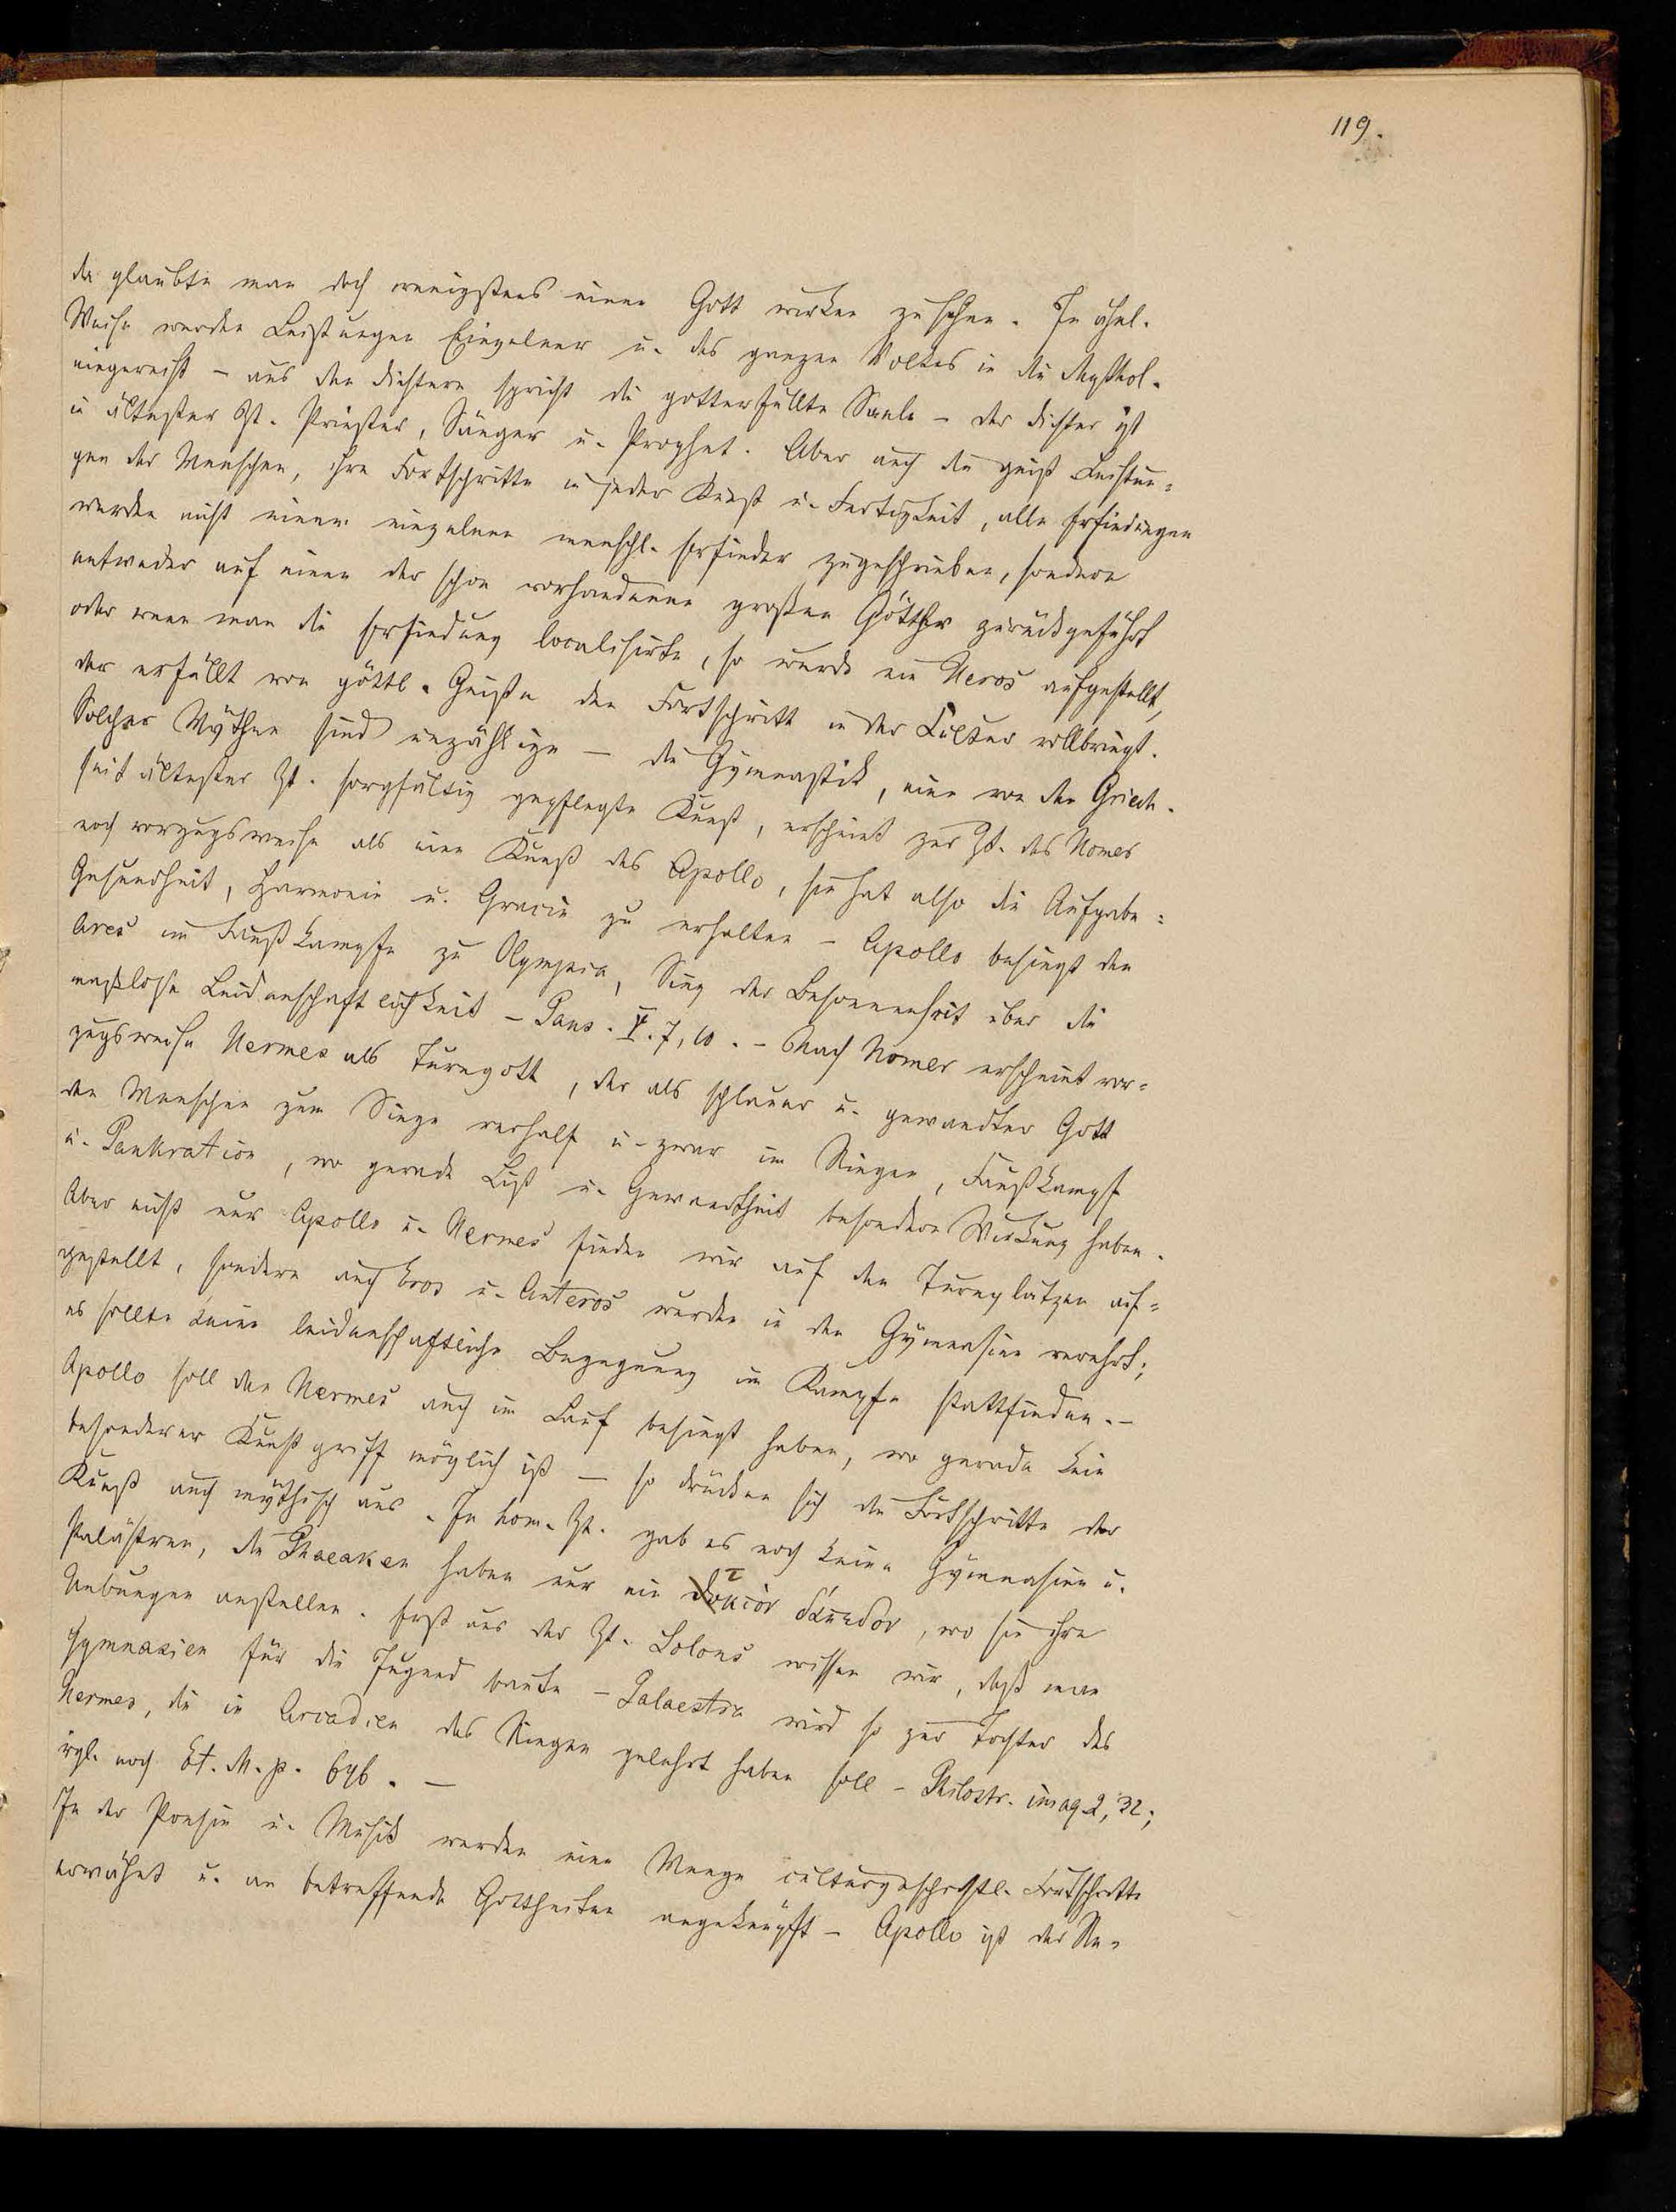 119.
da glaubte man doch wenigstens einen Gott wirken zu sehen. In ähnl.
Weise werden Leistungen Einzelner u. des ganzen Volkes in die Mythol.
eingereiht – aus den Dichtern spricht die gotterfüllte Seele – der Dichter ist
in ältester Zt. Priester, Sänger u. Prophet. Aber auch die geist. Leistun-
gen der Menschen, ihre Fortschritte in jeder Kunst u. Fertigkeit, alle Erfindungen
werden nicht einem einzelnen menschl. Erfinder zugeschrieben, sondern
entweder auf einen der schon vorhandenen großen Götter zurückgeführt
oder wenn man die Erfindung localisirte, so wurde ein Heros aufgestellt,
der erfüllt von göttl. Geiste den Fortschritt in der Cultur vollbringt.
Solcher Mythen sind unzählige – die Gymnastik, eine von den Griech.
seit ältester Zt. sorgfältig gepflegte Kunst, erscheint zur Zt. des Homer
noch vorzugsweise als eine Kunst des Apollo, sie hat also die Aufgabe:
Gesundheit, Harmonie u. Grazie zu erhalten – Apollo besiegt den
Ares im Faustkampfe zu Olympia, Sieg der Besonnenheit über die
maßlose Leidenschaftlichkeit – Paus. V. 7, 10. – Nach Homer erscheint vor-
zugsweise Hermes als Turngott, der als schlauer u. gewandter Gott
den Menschen zum Siege verhalf u. zwar im Ringen, Faustkampf
u. Pankration, wo gerade List u. Gewandtheit besondere Wirkung haben.
Aber nicht nur Apollo u. Hermes finden wir auf den Turnplätzen auf-
gestellt, sondern auch Eros u. Anteros wurden in den Gymnasien verehrt;
es sollte keine leidenschaftliche Begegnung im Kampfe stattfinden. –
Apollo soll den Hermes auch im Lauf besiegt haben, wo gerade kein
besonderer Kunstgriff möglich ist – so drücken sich die Fortschritte der
Kunst auch mythisch aus. In hom. Zt. gab es noch keine Gymnasien u.
Palästren, die Phaeaken haben nur ein , wo sie ihre
Uebungen anstellen. Erst aus der Zt. Solons wissen wir, daß man
Gymnasien für die Jugend baute – Palaestra wird so zur Tochter des
Hermes, die in Arcadien das Ringen gelehrt haben soll – Philostr. imag. 2, 32;
vgl. noch Et. M. p. 646. –
In der Poesie u. Musik werden eine Menge culturgeschichtl. Fortschritte
erwähnt u. an betreffende Gottheiten angeknüpft – Apollo ist der Re-